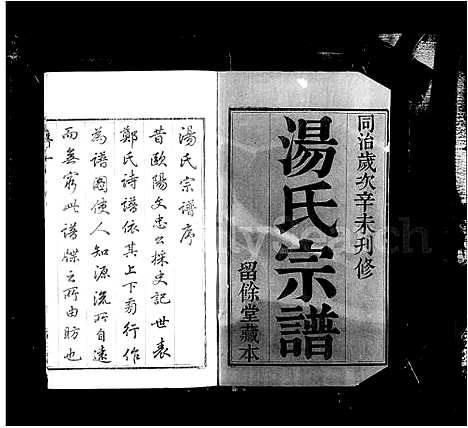 同治歲次辛未刋修
湯氏宗譜
留餘堂藏本
湯氏宗譜序
昔歐陽文忠公採史記世表
鄭氏詩譜依其上下旁行作
為譜圖使人知源流所自遠
而無窮此譜牒之所由昉也